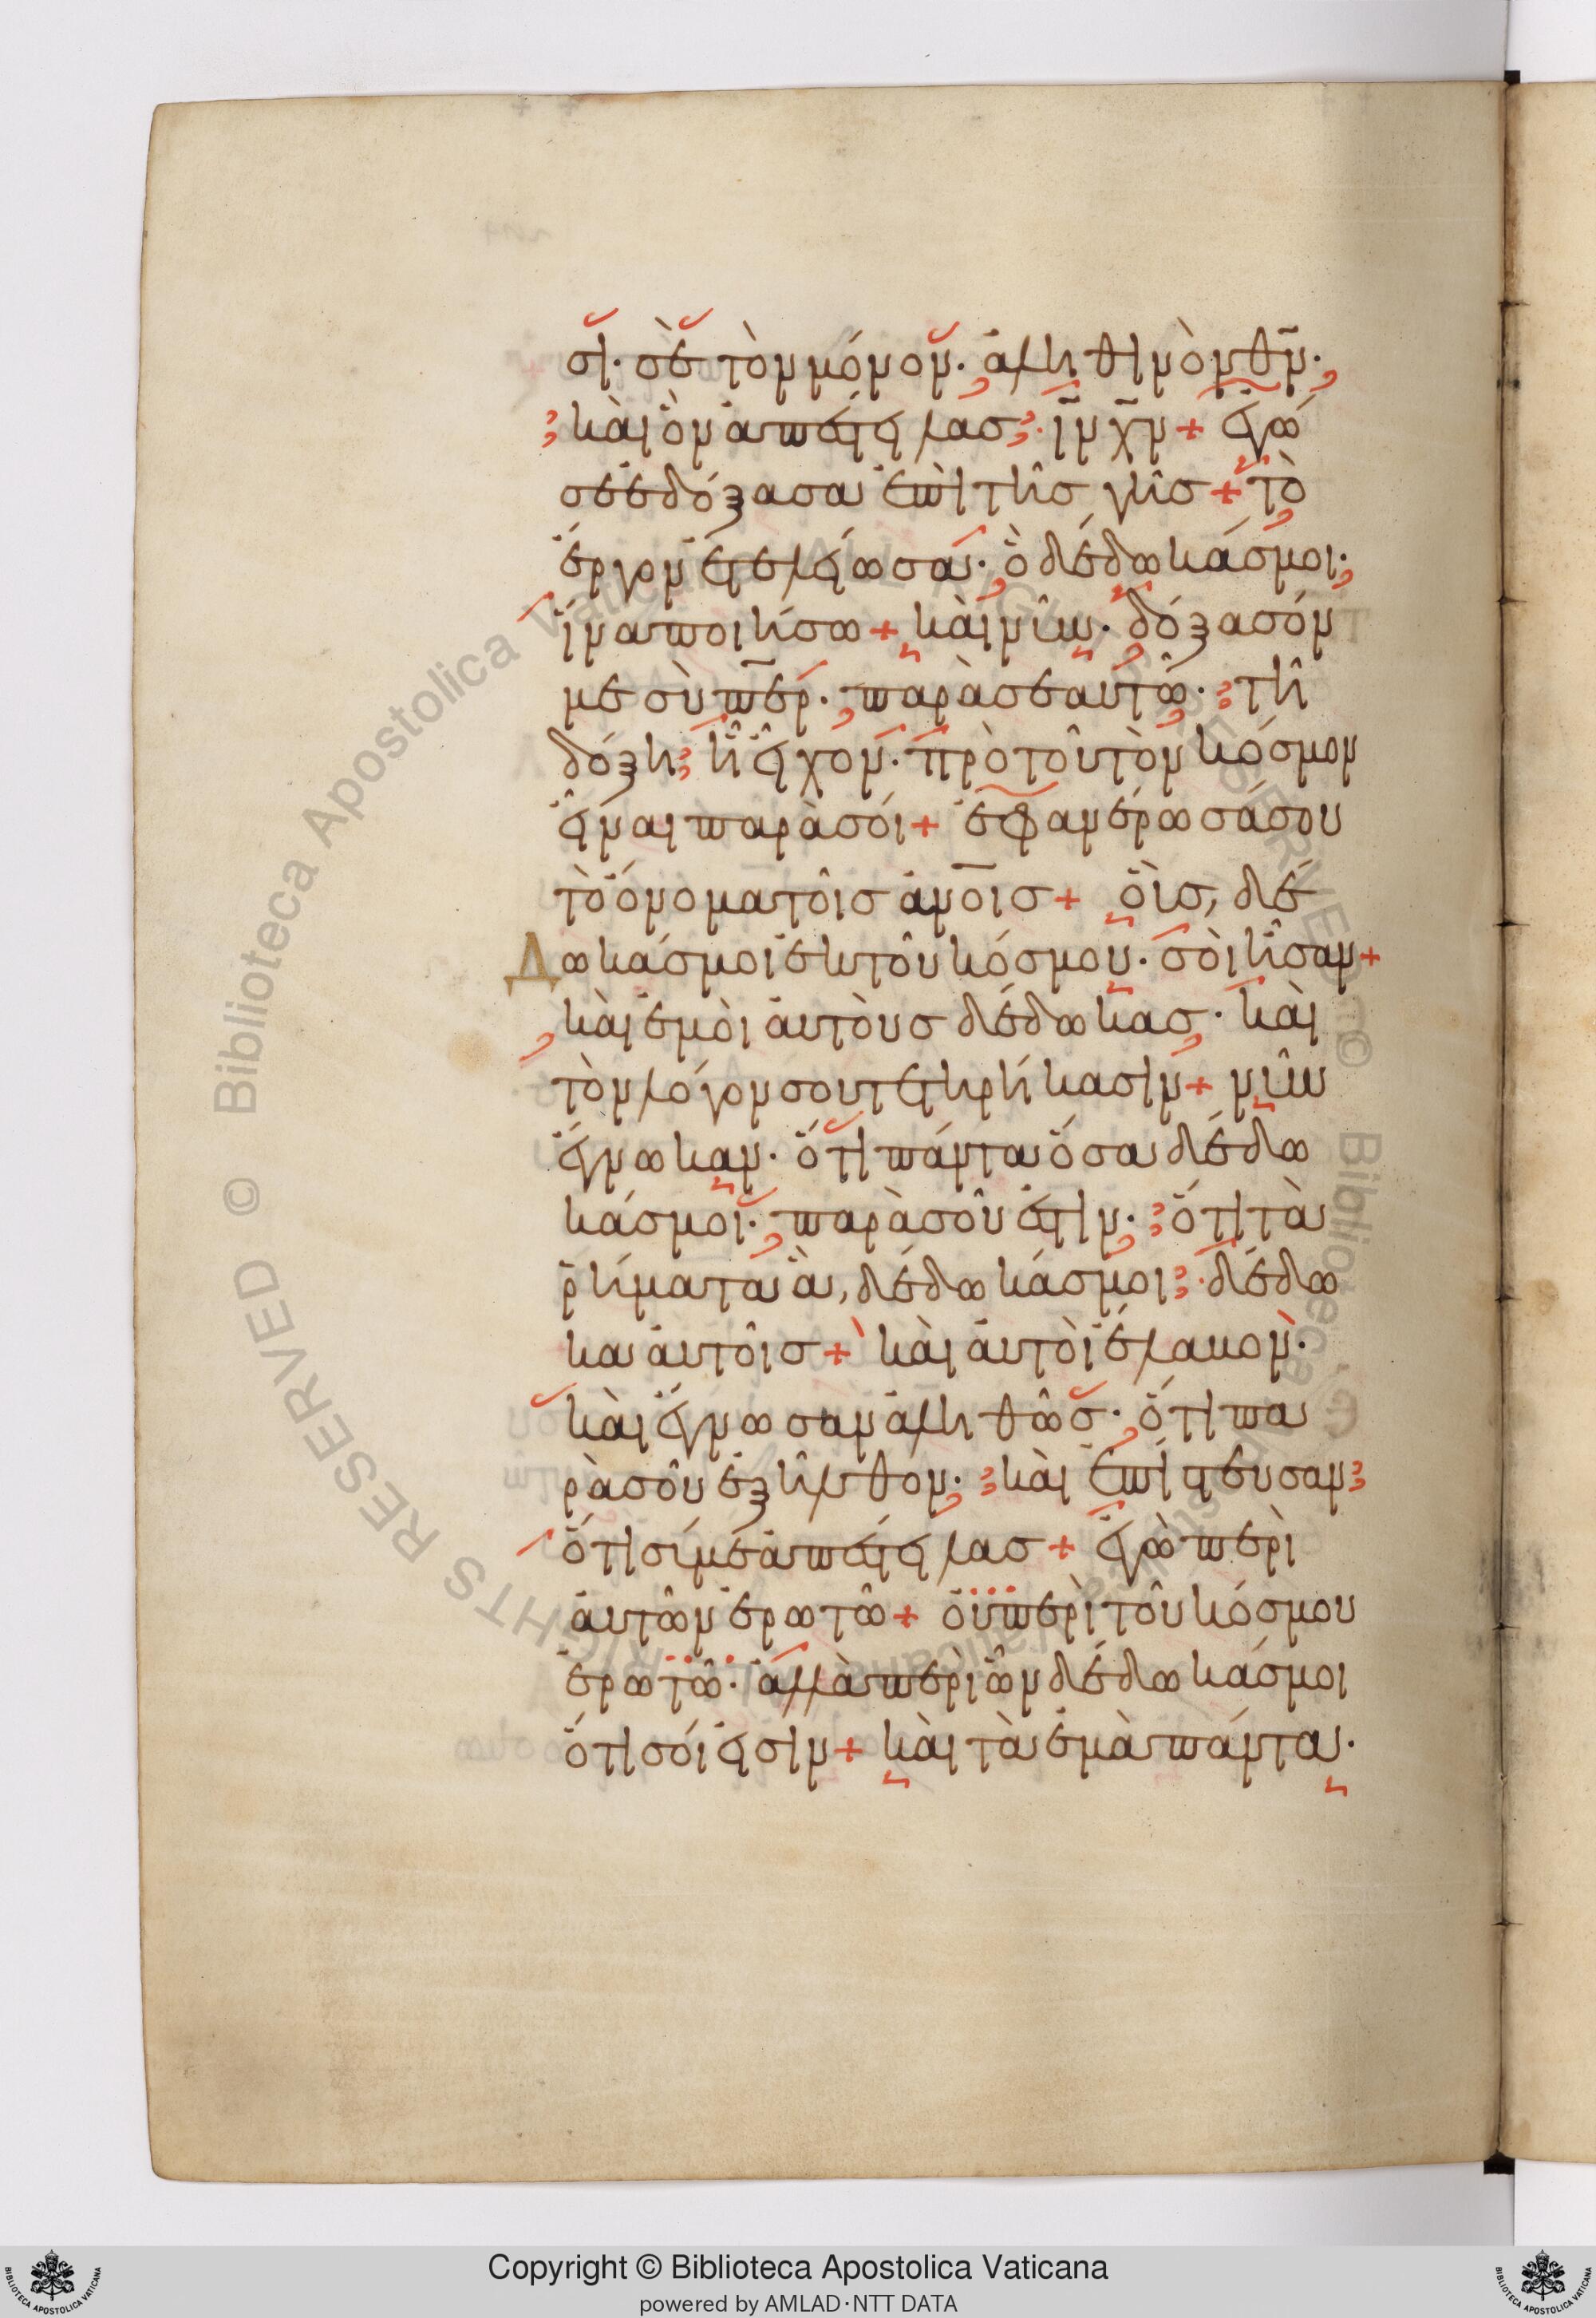 σι· σὲ τὸν μόνον· ἀληθινὸν θ̅ν̅·
καὶ ὃν ἀπέστειλας· ι̅ν̅ χ̅ν̅ + ἐγώ
σε ἐδόξασα ἐπὶ τῆς γῆς + τὸ
ἔργον ἐτελείωσα· ὃ δέδωκάς μοι·
ἵνα ποιήσω + καὶ νῦν· δόξασόν
με σὺ π̅ε̅ρ· παρὰ σεαυτῷ· τῆ
δόξη· ἧ εἶχον· πρὸ τοῦ τὸν κόσμον
εἶναι παρὰ σοί + ἐφανέρωσά σου
τὸ ὄνομα τοῖς ἀν̅ο̅ις + οὓς, δέ
δωκάς μοι ἐκ τοῦ κόσμου· σοὶ ἦσαν +
καὶ ἐμοὶ αὐτοὺς δέδωκας· καὶ
τὸν λόγον σου τετηρήκασιν + νῦν
ἔγνωκαν· ὅτι πάντα ὅσα δέδω
κάς μοι· παρὰ σοῦ ἐστιν· ὅτι τὰ
ῥήματα ἃ, δέδωκάς μοι· δέδω
κα αὐτοῖς + καὶ αὐτοὶ ἔλαβον·
καὶ ἔγνωσαν ἀληθῶς· ὅτι πα
ρὰ σοῦ ἐξῆλθον· καὶ ἐπίστευσαν
ὅτι σύ με ἀπέστειλας + ἐγὼ περὶ
αὐτῶν ἐρωτῶ + οὐ περὶ τοῦ κόσμου
ἐρωτῶ· ἀλλὰ περὶ ὧν δέδωκάς μοι
ὅτι σοί εἰσιν + καὶ τὰ ἐμὰ πάντα·
Biblioteca Apostolica Vaticana ALL RIGHTS RESERVED ©
Copyright © Biblioteca Apostolica Vaticana
powered by AMLAD·NTT DATA